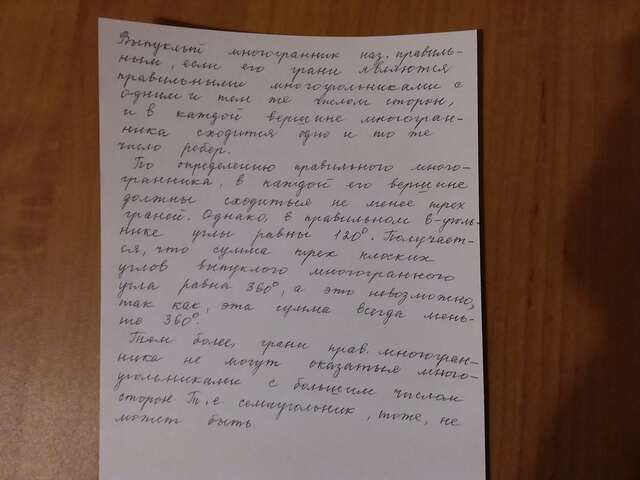 Выпуклый многогранник наз. правиль-
ным, если его грани являются
правильными многоугольниками с
одним и тем же числом сторон,
и в каждой вершине многогран-
ника сходится одно и то же
число ребер.
По определению правильного много-
гранника, в каждой его вершине
должны сходиться не менее трех
граней. Однако, в правильном 6-уголь-
нике углы равны 120°. Получает-
ся, что сумма трех плоских
углов выпуклого многогранного
угла равна 360°, а это невозможно,
так как, эта сумма всегда мень-
ше 360°.
Тем более, грани прав. многогран-
ника не могут оказаться много-
угольниками с большим числом
сторон Т.е семиугольник, тоже, не
может быть.